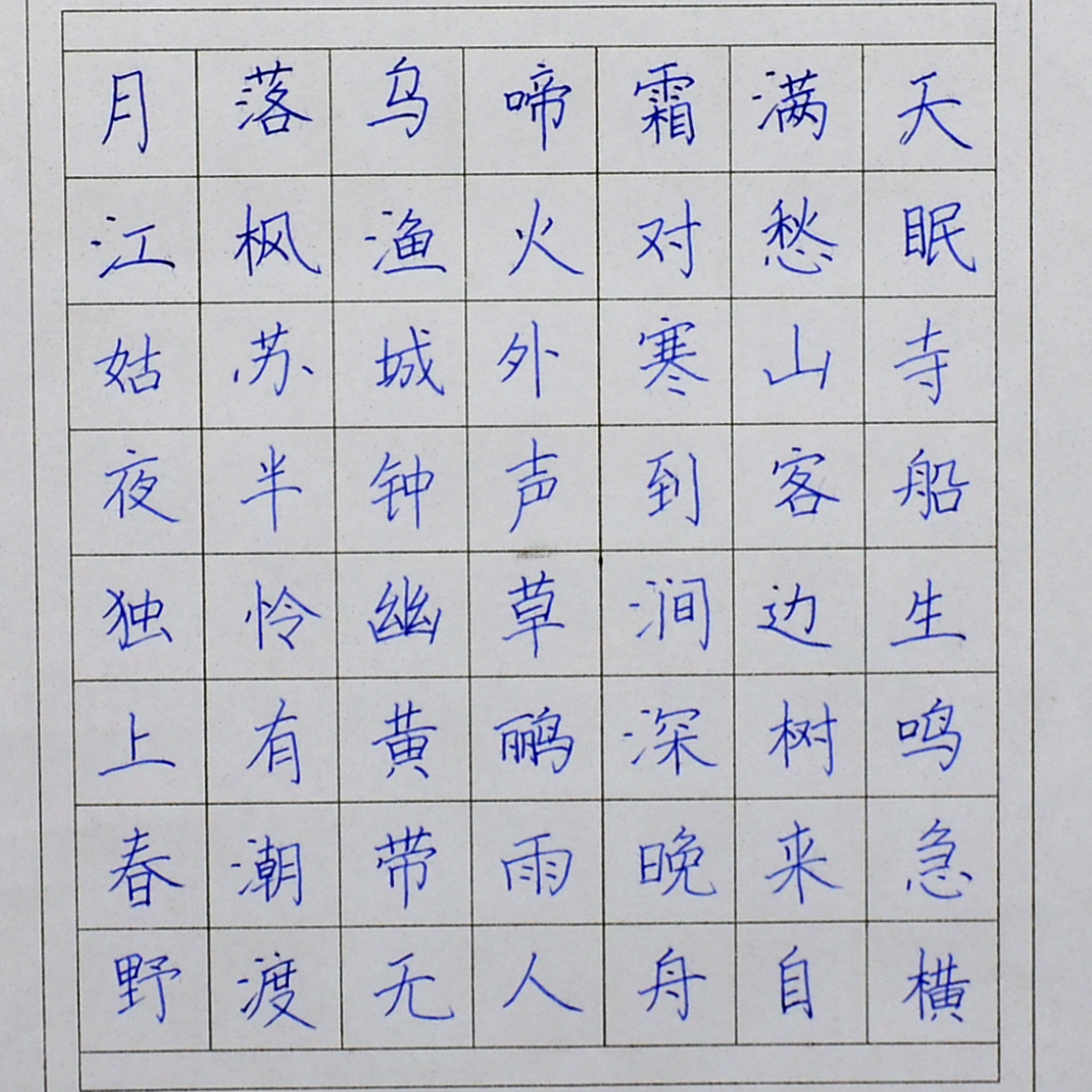 月落乌啼霜满天
江枫渔火对愁眠
姑苏城外寒山寺
夜半钟声到客船
独怜幽草涧边生
上有黄鹂深树鸣
春潮带雨晚来急
野渡无人舟自横